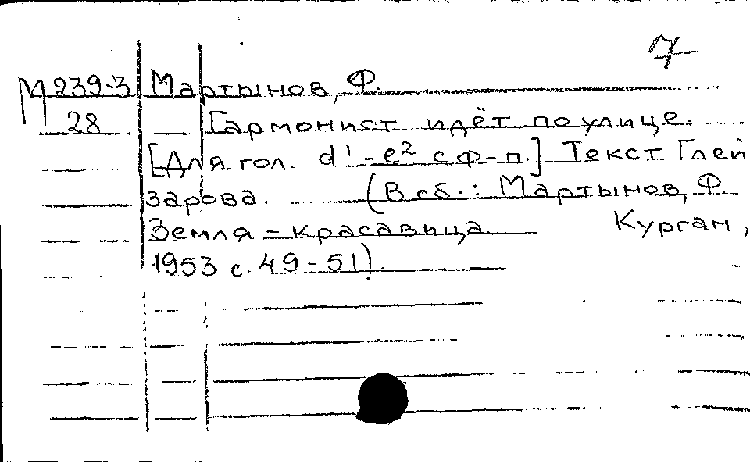 7
М 239-3 Мартынов, Ф.
28 Гармонист идёт по улице.
[Для гол. d¹-e² с ф-п.] Текст Глей
зарова. (В сб.: Мартынов, Ф.
Земля-красавица Курган,
1953 с. 49-51).